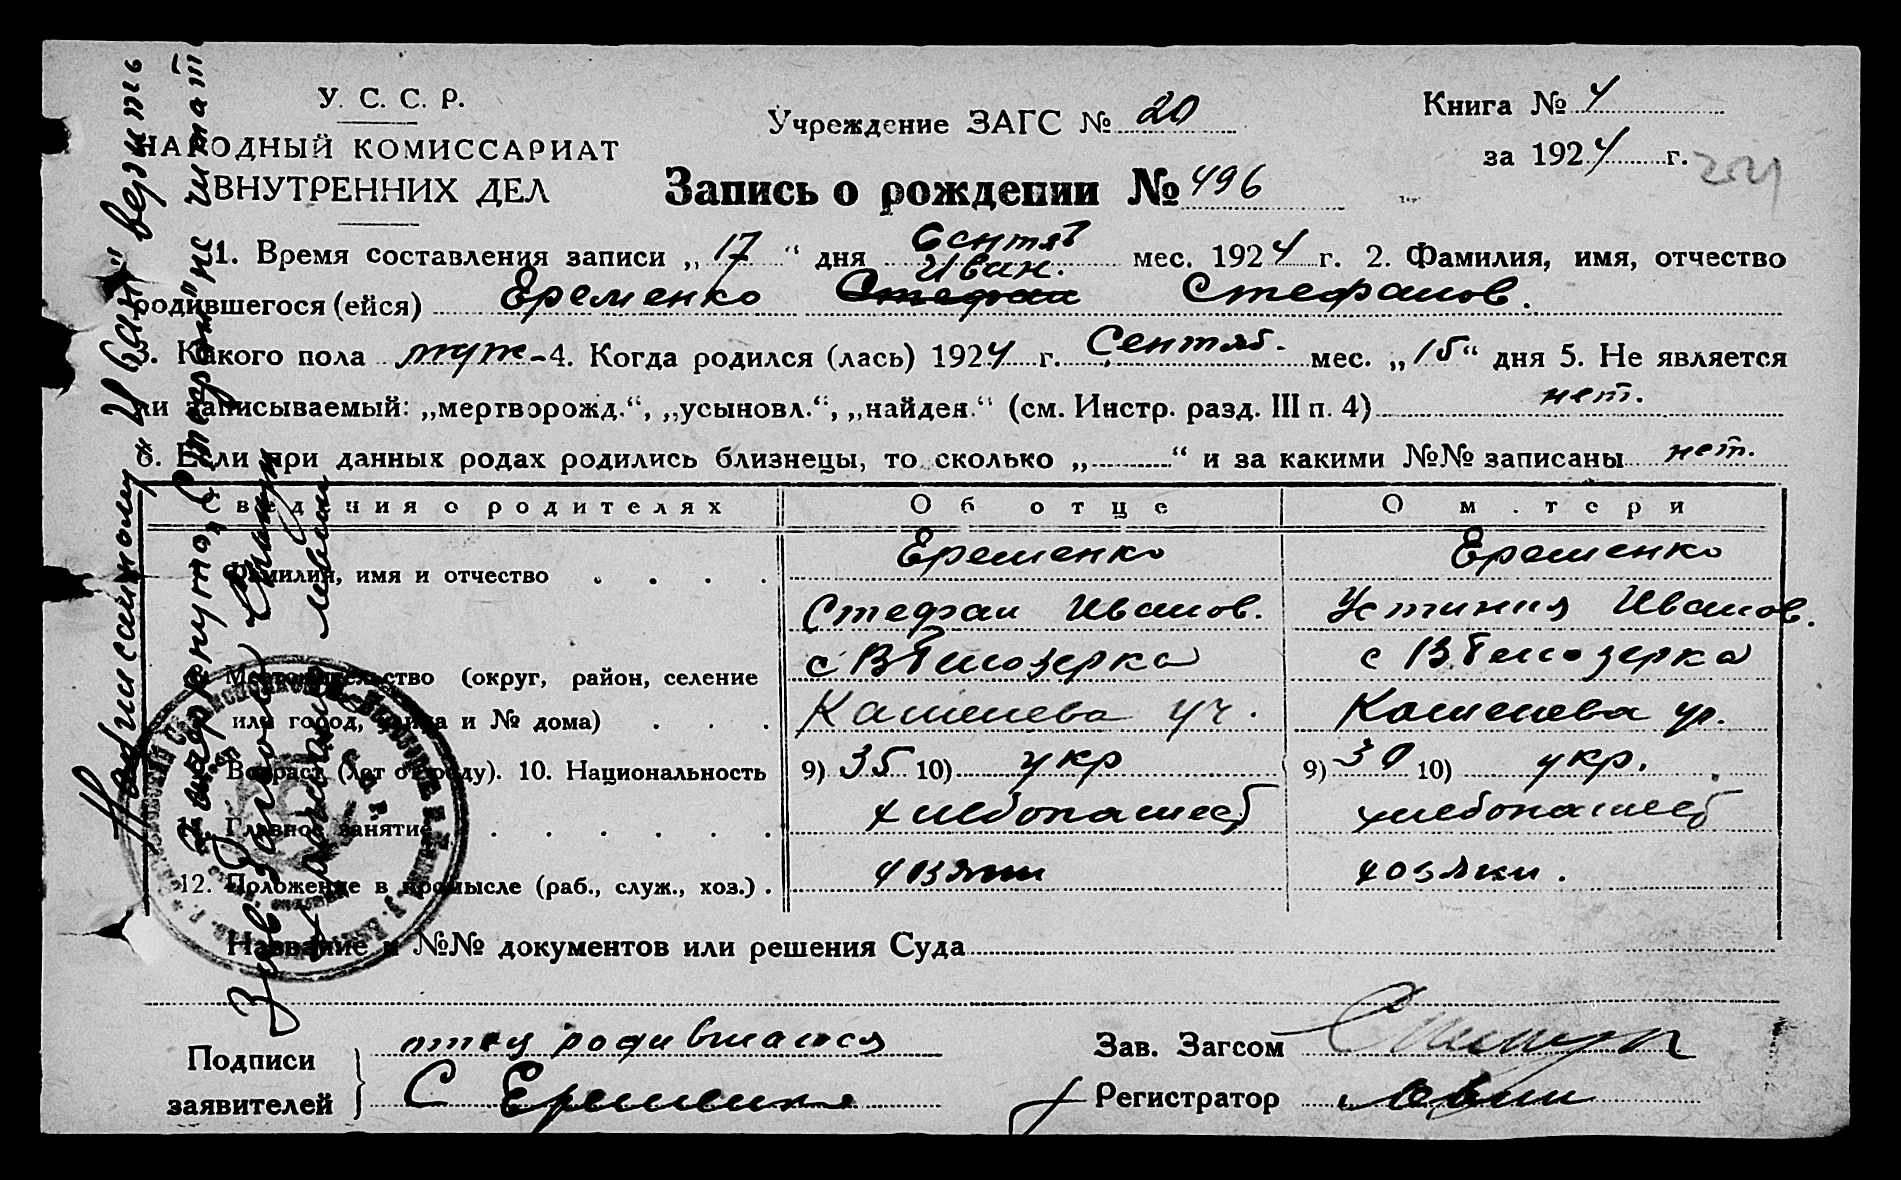 У. С. С. Р.
НАРОДНЫЙ КОМИССАРИАТ
ВНУТРЕННИХ ДЕЛ
Учреждение ЗАГС № 20
Книга № 4
за 1924 г.
Запись о рождении № 496
1. Время составления записи „17“ дня Сентяб мес. 1924 г. 2. Фамилия, имя, отчество
Иван.
родившегося (ейся) Еременко Стефан Стефанов.
3. Какого пола муж - 4. Когда родился (лась) 1924 г. Сентяб. мес. „15“ дня 5. Не является
ли записываемый: „мертворожд.“, „усыновл.“, „найден.“ (см. Инстр. разд. III п. 4) нет.
6. Если при данных родах родились близнецы, то сколько „ “ и за какими №№ записаны нет.
Сведения о родителях Об отце О м.тери
Фамилия, имя и отчество Еременко Еременко
Стефан Иванов. Устиния Иванов.
8. Местожительство (округ, район, селение с В Белозерка с В. Белозерка
или город, улица и № дома) Каменева уч. Каменева ур.
9. Возраст (лет от роду). 10. Национальность 9) 35 10) укр 9) 30 10) укр.
11. Главное занятие хлебопашеc хлебопашеc
12. Положение в промысле (раб., служ., хоз.) хозяин хозяки.
Название и №№ документов или решения Суда
Подписи заявителей
отец родившагося
С Еременко
Зав. Загсом
Регистратор
Надписанному „Иван“ верить
Зачеркнутое „Стефан“ не читат
Зав Загсом